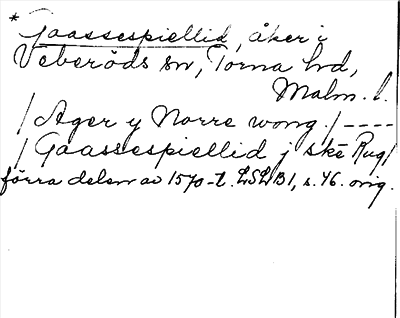 * Gaassespiellid, åker i
Veberöds sn, Torna hd,
Malm. l.
/ Ager y Norre wong. / ----
/ Gaassespiellid j skē Rug/
förra delen av 1570-t. LSLB1, s. 46. orig.